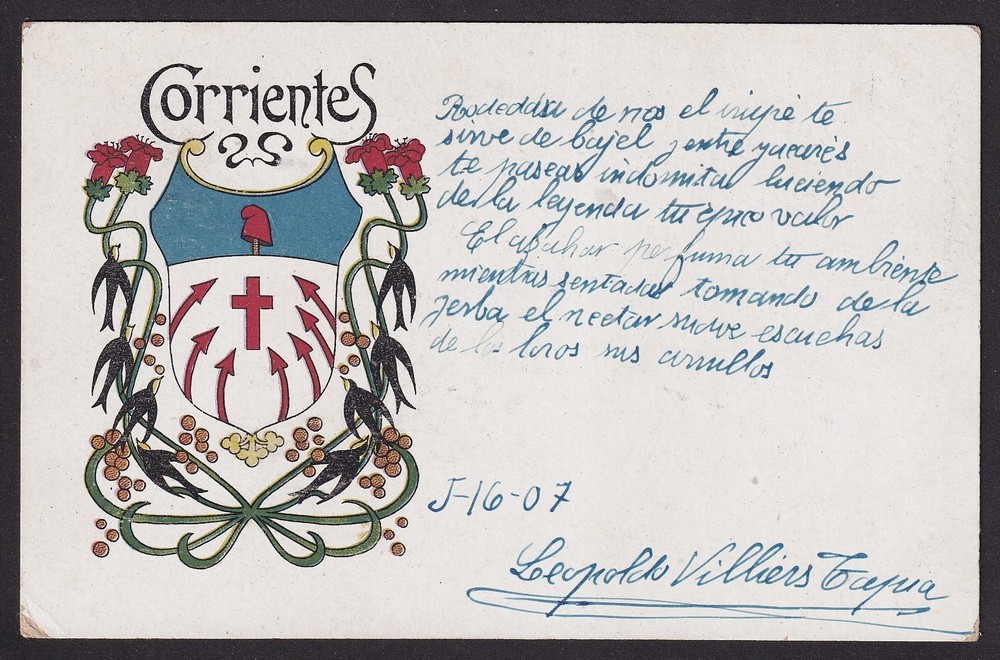 Corrientes
Rodeada de rios el irupé te
sirve de bajel y entre yacarés
te paseas indomita luciendo
de la leyenda tu épico valor
El azahar perfuma tu ambiente
mientras sentada tomando de la
yerba el nectar suave escuchas
de los loros sus arrullos
J-16-07
Leopoldo Villiers Tapia